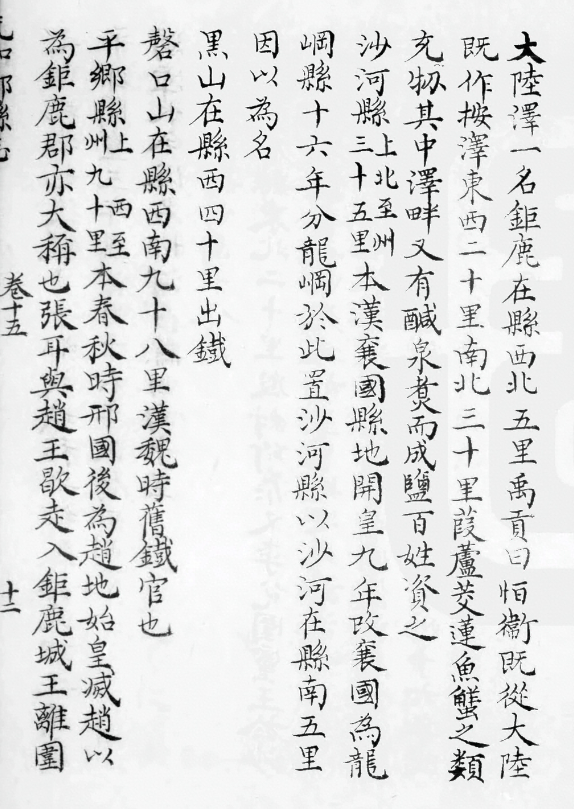 大陸澤一名鉅鹿在縣西北五里禹貢曰恒衞既從大陸
既作按澤東西二十里南北三十里葭蘆茭蓮魚蟹之類
充牣其中澤畔又有鹹泉煑而成鹽百姓資之
沙河縣上北至州三十五里本漢襄國縣地開皇九年改襄國為龍
岡縣十六年分龍岡於此置沙河縣以沙河在縣南五里
因以為名
黑山在縣西四十里出鐵
磬口山在縣西南九十八里漢魏時舊鐵官也
平鄉縣上西至州九十里本春秋時邢國後為趙地始皇滅趙以
為鉅鹿郡亦大稱也張耳與趙王歇走入鉅鹿城王離圍
卷十五
十二